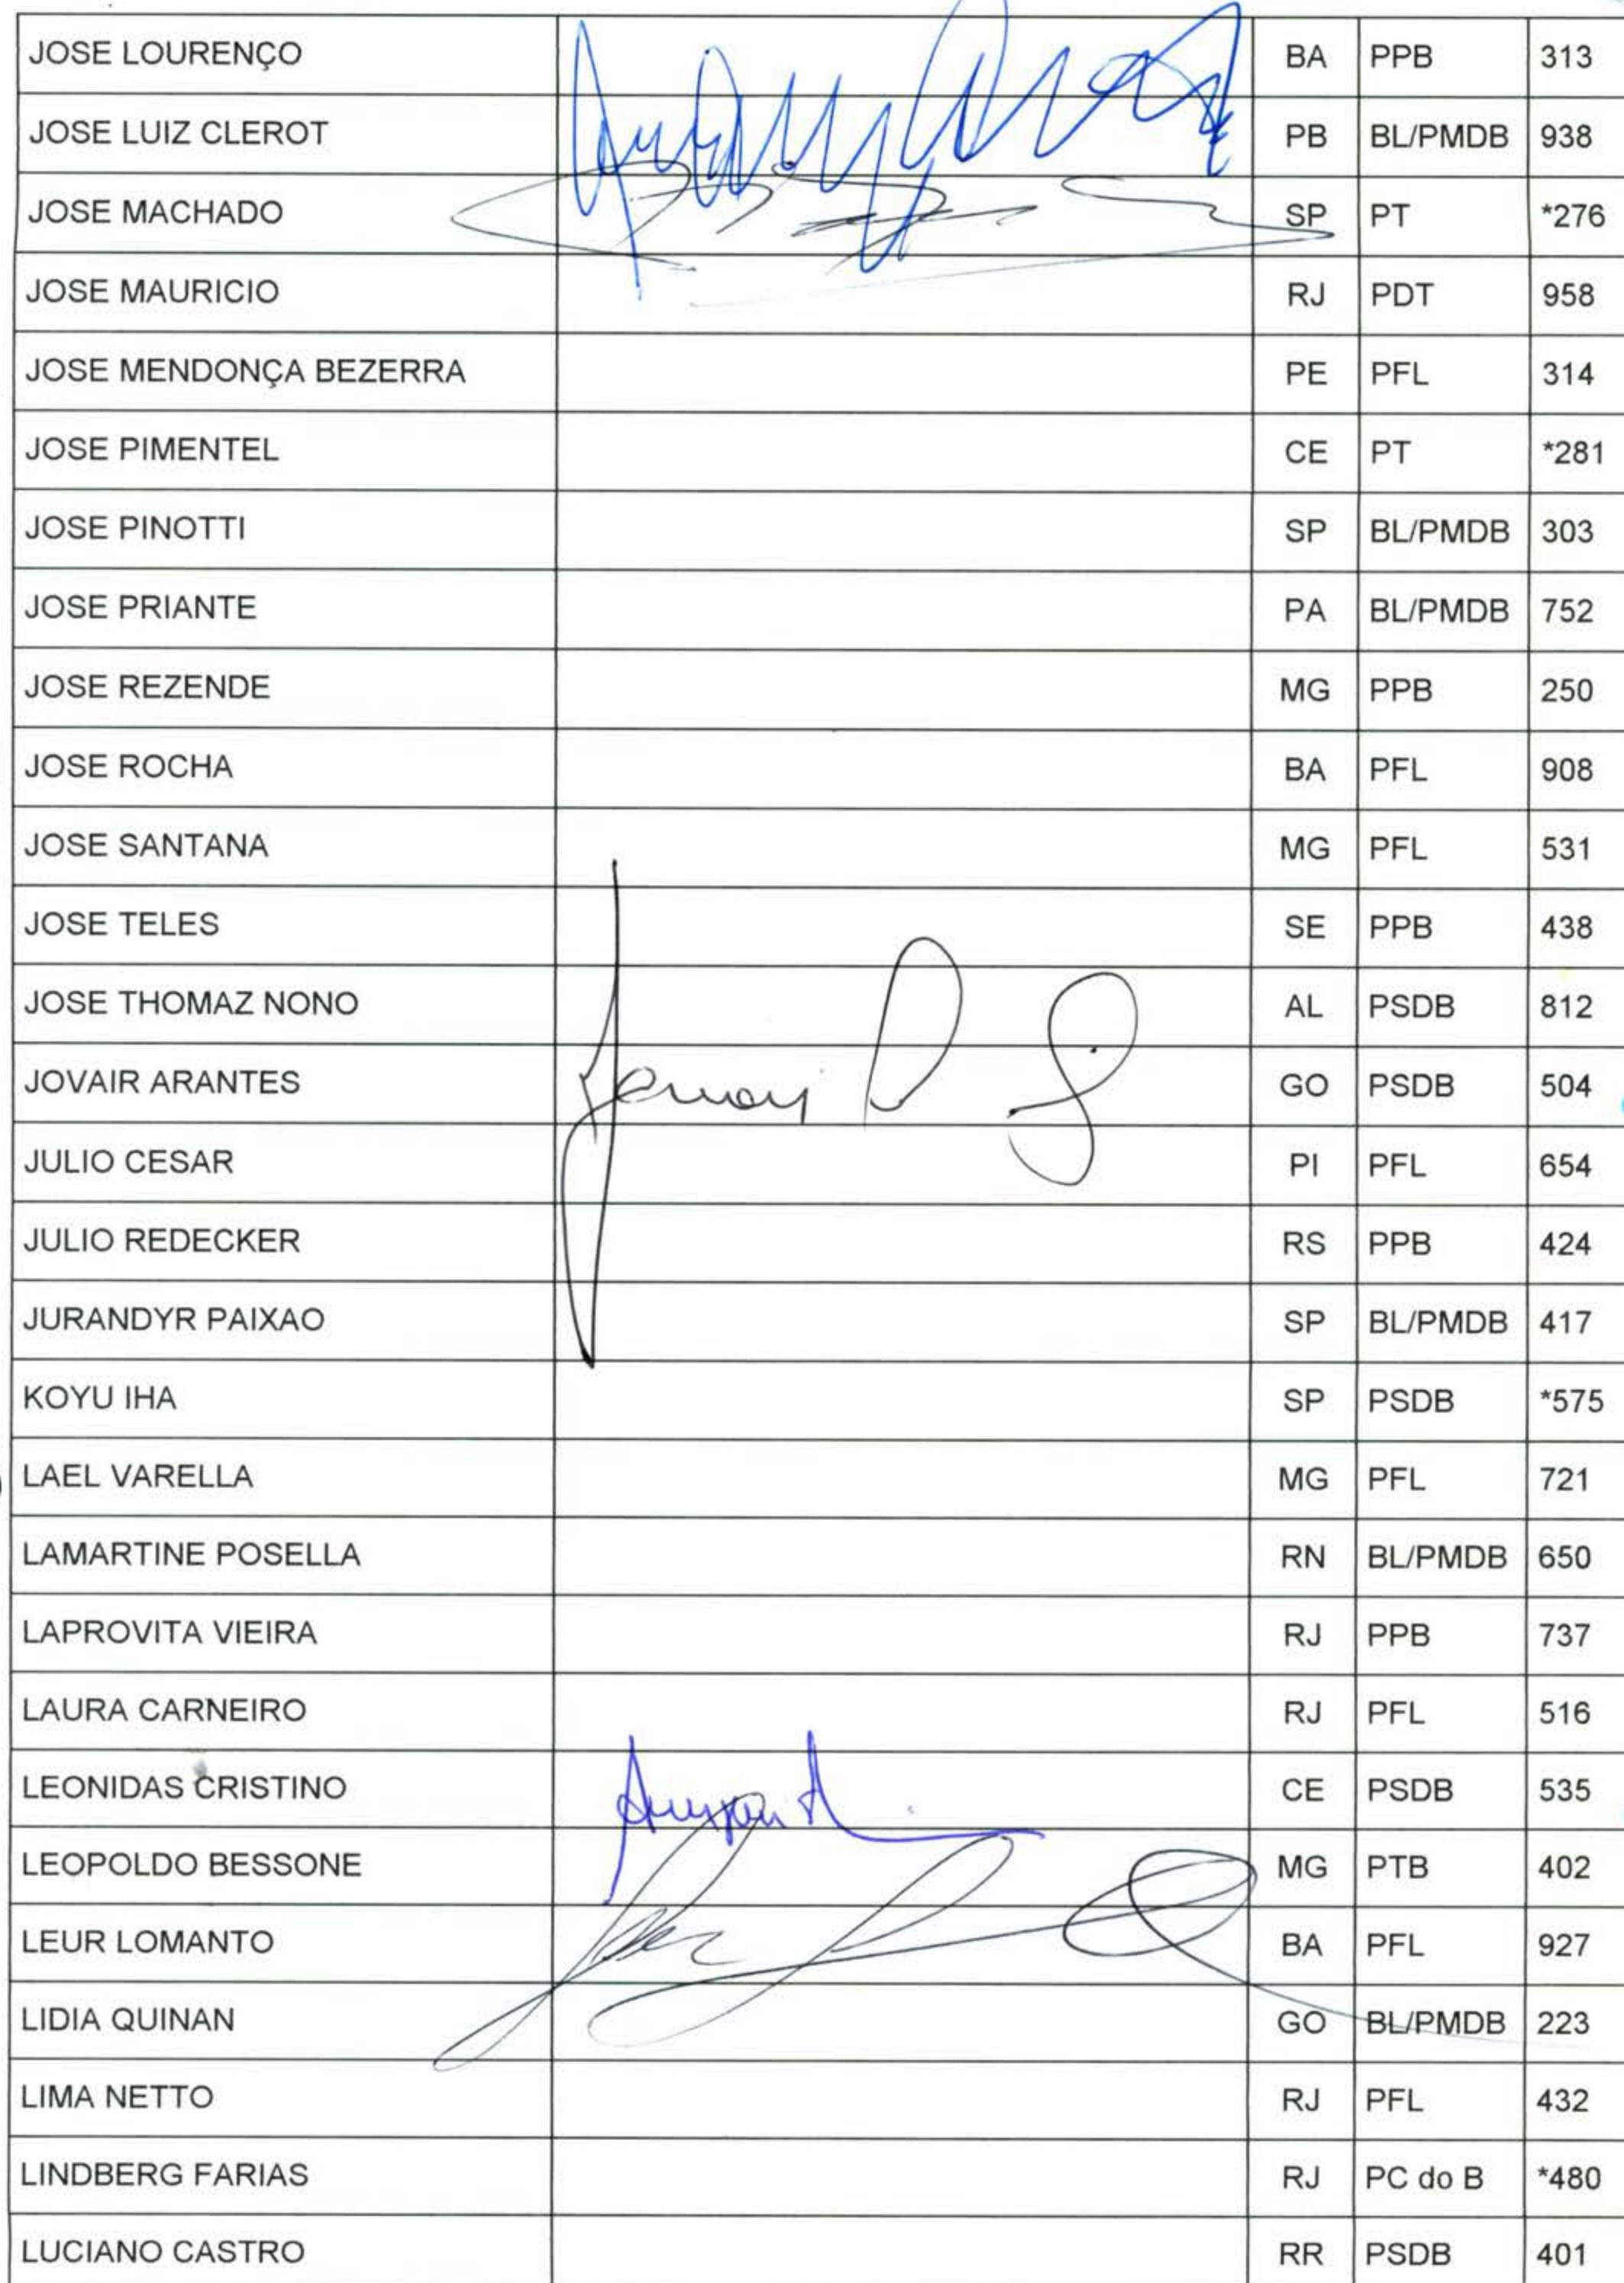 JOSE LOURENÇO BA PPB 313
JOSE LUIZ CLEROT PB BL/PMDB 938
JOSE MACHADO SP PT *276
JOSE MAURICIO RJ PDT 958
JOSE MENDONÇA BEZERRA PE PFL 314
JOSE PIMENTEL CE PT *281
JOSE PINOTTI SP BL/PMDB 303
JOSE PRIANTE PA BL/PMDB 752
JOSE REZENDE MG PPB 250
JOSE ROCHA BA PFL 908
JOSE SANTANA MG PFL 531
JOSE TELES SE PPB 438
JOSE THOMAZ NONO AL PSDB 812
JOVAIR ARANTES GO PSDB 504
JULIO CESAR PI PFL 654
JULIO REDECKER RS PPB 424
JURANDYR PAIXAO SP BL/PMDB 417
KOYU IHA SP PSDB *575
LAEL VARELLA MG PFL 721
LAMARTINE POSELLA RN BL/PMDB 650
LAPROVITA VIEIRA RJ PPB 737
LAURA CARNEIRO RJ PFL 516
LEONIDAS CRISTINO CE PSDB 535
LEOPOLDO BESSONE MG PTB 402
LEUR LOMANTO BA PFL 927
LIDIA QUINAN GO BL/PMDB 223
LIMA NETTO RJ PFL 432
LINDBERG FARIAS RJ PC do B *480
LUCIANO CASTRO RR PSDB 401